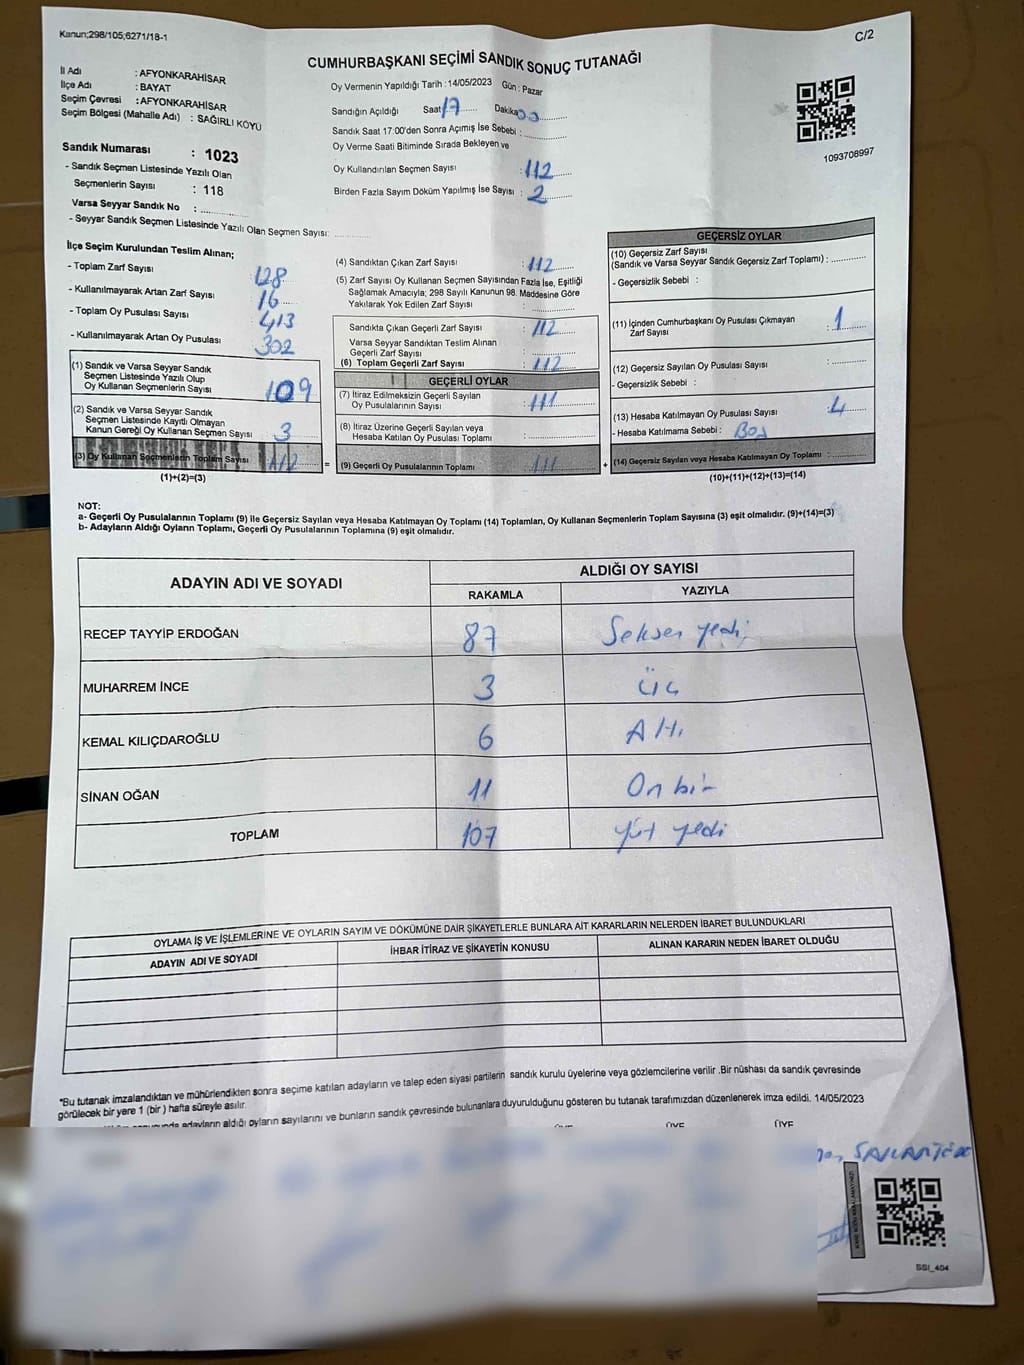 Kanun;298/105;6271/18-1
C/2
CUMHURBAŞKANI SEÇİMİ SANDIK SONUÇ TUTANAĞI
İl Adı : AFYONKARAHİSAR
İlçe Adı : BAYAT
Seçim Çevresi : AFYONKARAHİSAR
Seçim Bölgesi (Mahalle Adı) : SAĞIRLI KÖYÜ
Sandık Numarası : 1023
- Sandık Seçmen Listesinde Yazılı Olan
Seçmenlerin Sayısı : 118
Varsa Seyyar Sandık No : ............
- Seyyar Sandık Seçmen Listesinde Yazılı Olan Seçmen Sayısı: ............
Oy Vermenin Yapıldığı Tarih : 14/05/2023 Gün : Pazar
Sandığın Açıldığı Saat 17 Dakika 00
Sandık Saat 17:00'den Sonra Açımış İse Sebebi : ............
Oy Verme Saati Bitiminde Sırada Bekleyen ve
Oy Kullandırılan Seçmen Sayısı : 112
Birden Fazla Sayım Döküm Yapılmış İse Sayısı : 2
1093708997
İlçe Seçim Kurulundan Teslim Alınan;
- Toplam Zarf Sayısı 128
- Kullanılmayarak Artan Zarf Sayısı 16
- Toplam Oy Pusulası Sayısı : 413
- Kullanılmayarak Artan Oy Pusulası 302
(1) Sandık ve Varsa Seyyar Sandık
Seçmen Listesinde Yazılı Olup
Oy Kullanan Seçmenlerin Sayısı 109
(2) Sandık ve Varsa Seyyar Sandık
Seçmen Listesinde Kayıtlı Olmayan
Kanun Gereği Oy Kullanan Seçmen Sayısı 3
(3) Oy Kullanan Seçmenlerin Toplam Sayısı 112
(1)+(2)=(3)
=
(4) Sandıktan Çıkan Zarf Sayısı : 112
(5) Zarf Sayısı Oy Kullanan Seçmen Sayısından Fazla İse, Eşitliği
Sağlamak Amacıyla; 298 Sayılı Kanunun 98. Maddesine Göre
Yakılarak Yok Edilen Zarf Sayısı : ............
Sandıkta Çıkan Geçerli Zarf Sayısı : 112
Varsa Seyyar Sandıktan Teslim Alınan
Geçerli Zarf Sayısı : ............
(6) Toplam Geçerli Zarf Sayısı : 112
GEÇERLİ OYLAR
(7) İtiraz Edilmeksizin Geçerli Sayılan
Oy Pusulalarının Sayısı : 111
(8) İtiraz Üzerine Geçerli Sayılan veya
Hesaba Katılan Oy Pusulası Toplamı : ............
(9) Geçerli Oy Pusulalarının Toplamı : 111
+
GEÇERSİZ OYLAR
(10) Geçersiz Zarf Sayısı
(Sandık ve Varsa Seyyar Sandık Geçersiz Zarf Toplamı) : ............
- Geçersizlik Sebebi :
(11) İçinden Cumhurbaşkanı Oy Pusulası Çıkmayan
Zarf Sayısı : 1
(12) Geçersiz Sayılan Oy Pusulası Sayısı : ............
- Geçersizlik Sebebi :
(13) Hesaba Katılmayan Oy Pusulası Sayısı : 4
- Hesaba Katılmama Sebebi : Boş
(14) Geçersiz Sayılan veya Hesaba Katılmayan Oy Toplamı : ............
(10)+(11)+(12)+(13)=(14)
NOT:
a- Geçerli Oy Pusulalarının Toplamı (9) ile Geçersiz Sayılan veya Hesaba Katılmayan Oy Toplamı (14) Toplamları, Oy Kullanan Seçmenlerin Toplam Sayısına (3) eşit olmalıdır. (9)+(14)=(3)
b- Adayların Aldığı Oyların Toplamı, Geçerli Oy Pusulalarının Toplamına (9) eşit olmalıdır.
ADAYIN ADI VE SOYADI ALDIĞI OY SAYISI
RAKAMLA YAZIYLA
RECEP TAYYİP ERDOĞAN 87 Seksen yedi
MUHARREM İNCE 3 Üç
KEMAL KILIÇDAROĞLU 6 Altı
SİNAN OĞAN 11 On bir
TOPLAM 107 Yüz yedi
OYLAMA İŞ VE İŞLEMLERİNE VE OYLARIN SAYIM VE DÖKÜMÜNE DAİR ŞİKAYETLERLE BUNLARA AİT KARARLARIN NELERDEN İBARET BULUNDUKLARI
ADAYIN ADI VE SOYADI İHBAR İTİRAZ VE ŞİKAYETİN KONUSU ALINAN KARARIN NEDEN İBARET OLDUĞU
*Bu tutanak imzalandıktan ve mühürlendikten sonra seçime katılan adayların ve talep eden siyasi partilerin sandık kurulu üyelerine veya gözlemcilerine verilir .Bir nüshası da sandık çevresinde
görülecek bir yere 1 (bir ) hafta süreyle asılır.
adayların aldığı oyların sayılarını ve bunların sandık çevresinde bulunanlara duyurulduğunu gösteren bu tutanak tarafımızdan düzenlenerek imza edildi. 14/05/2023
ÜYE ÜYE ÜYE
SSI_404